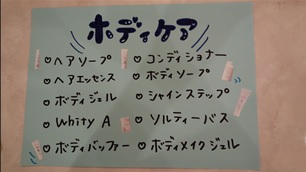 ボディケア
♡ ヘアソープ
♡ ヘアエッセンス
♡ ボディジェル
♡ Whity A
♡ ボディバッファー
♡ コンディショナー
♡ ボディソープ
♡ シャインステップ
♡ ソルティーバス
♡ ボディメイクジェル